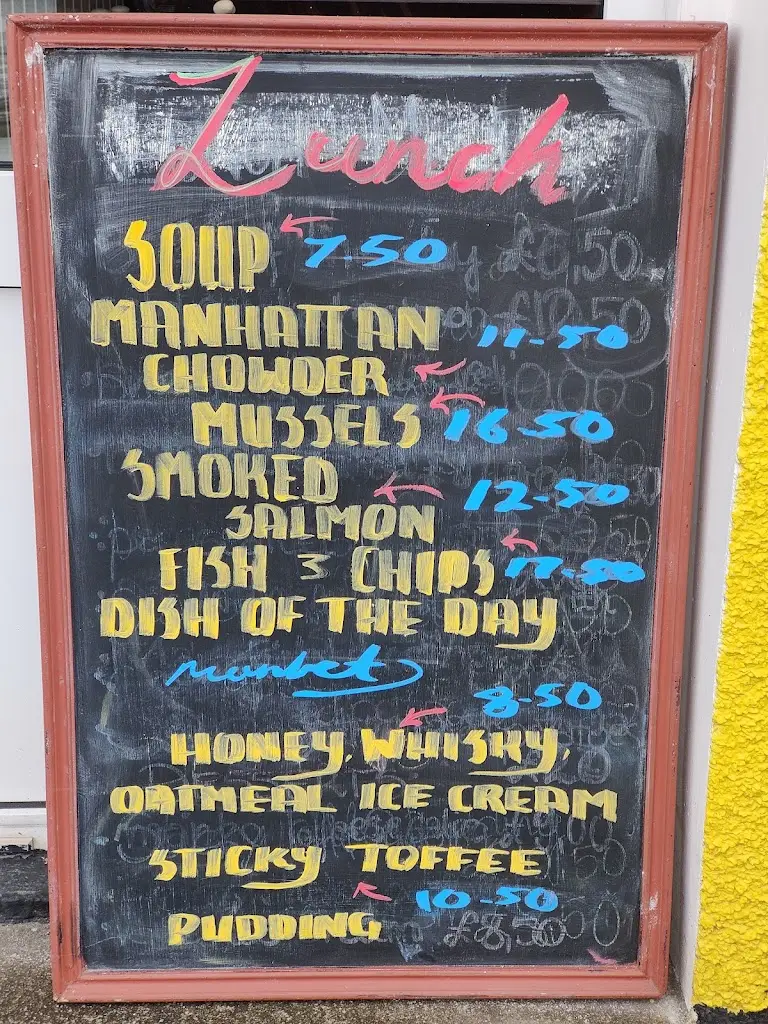 Lunch
SOUP 7.50
MANHATTAN 11-50
CHOWDER
MUSSELS 16.50
SMOKED
SALMON 12-50
FISH & CHIPS 17-50
DISH OF THE DAY
Market
8-50
HONEY, WHISKY,
OATMEAL ICE CREAM
STICKY TOFFEE
10-50
PUDDING £8,50